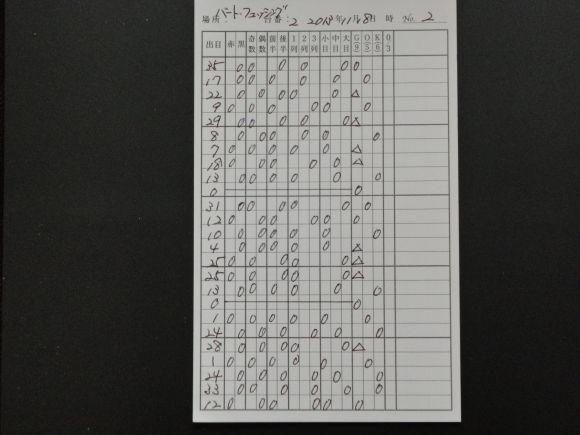 場所 バート・フェッシング 台番: 2 2018年11月8日 時 No. 2
出目 赤 黒 奇数 偶数 前半 後半 1列 2列 3列 小目 中目 大目 G⑨ O⑤ K⑥ 03
35 0 0 0 0 0 0
17 0 0 0 0 0 0
22 0 0 0 0 0 △
9 0 0 0 0 0 0
29 0 0 0 0 0 △
8 0 0 0 0 0 0
7 0 0 0 0 0 △
18 0 0 0 0 0 △
13 0 0 0 0 0 0
0 0
31 0 0 0 0 0 0
12 0 0 0 0 0 0
10 0 0 0 0 0 0
4 0 0 0 0 0 △
25 0 0 0 0 0 △
25 0 0 0 0 0 △
13 0 0 0 0 0 0
0 0
1 0 0 0 0 0 0
24 0 0 0 0 0 0
28 0 0 0 0 0 △
1 0 0 0 0 0 0
24 0 0 0 0 0 0
33 0 0 0 0 0 0
12 0 0 0 0 0 0